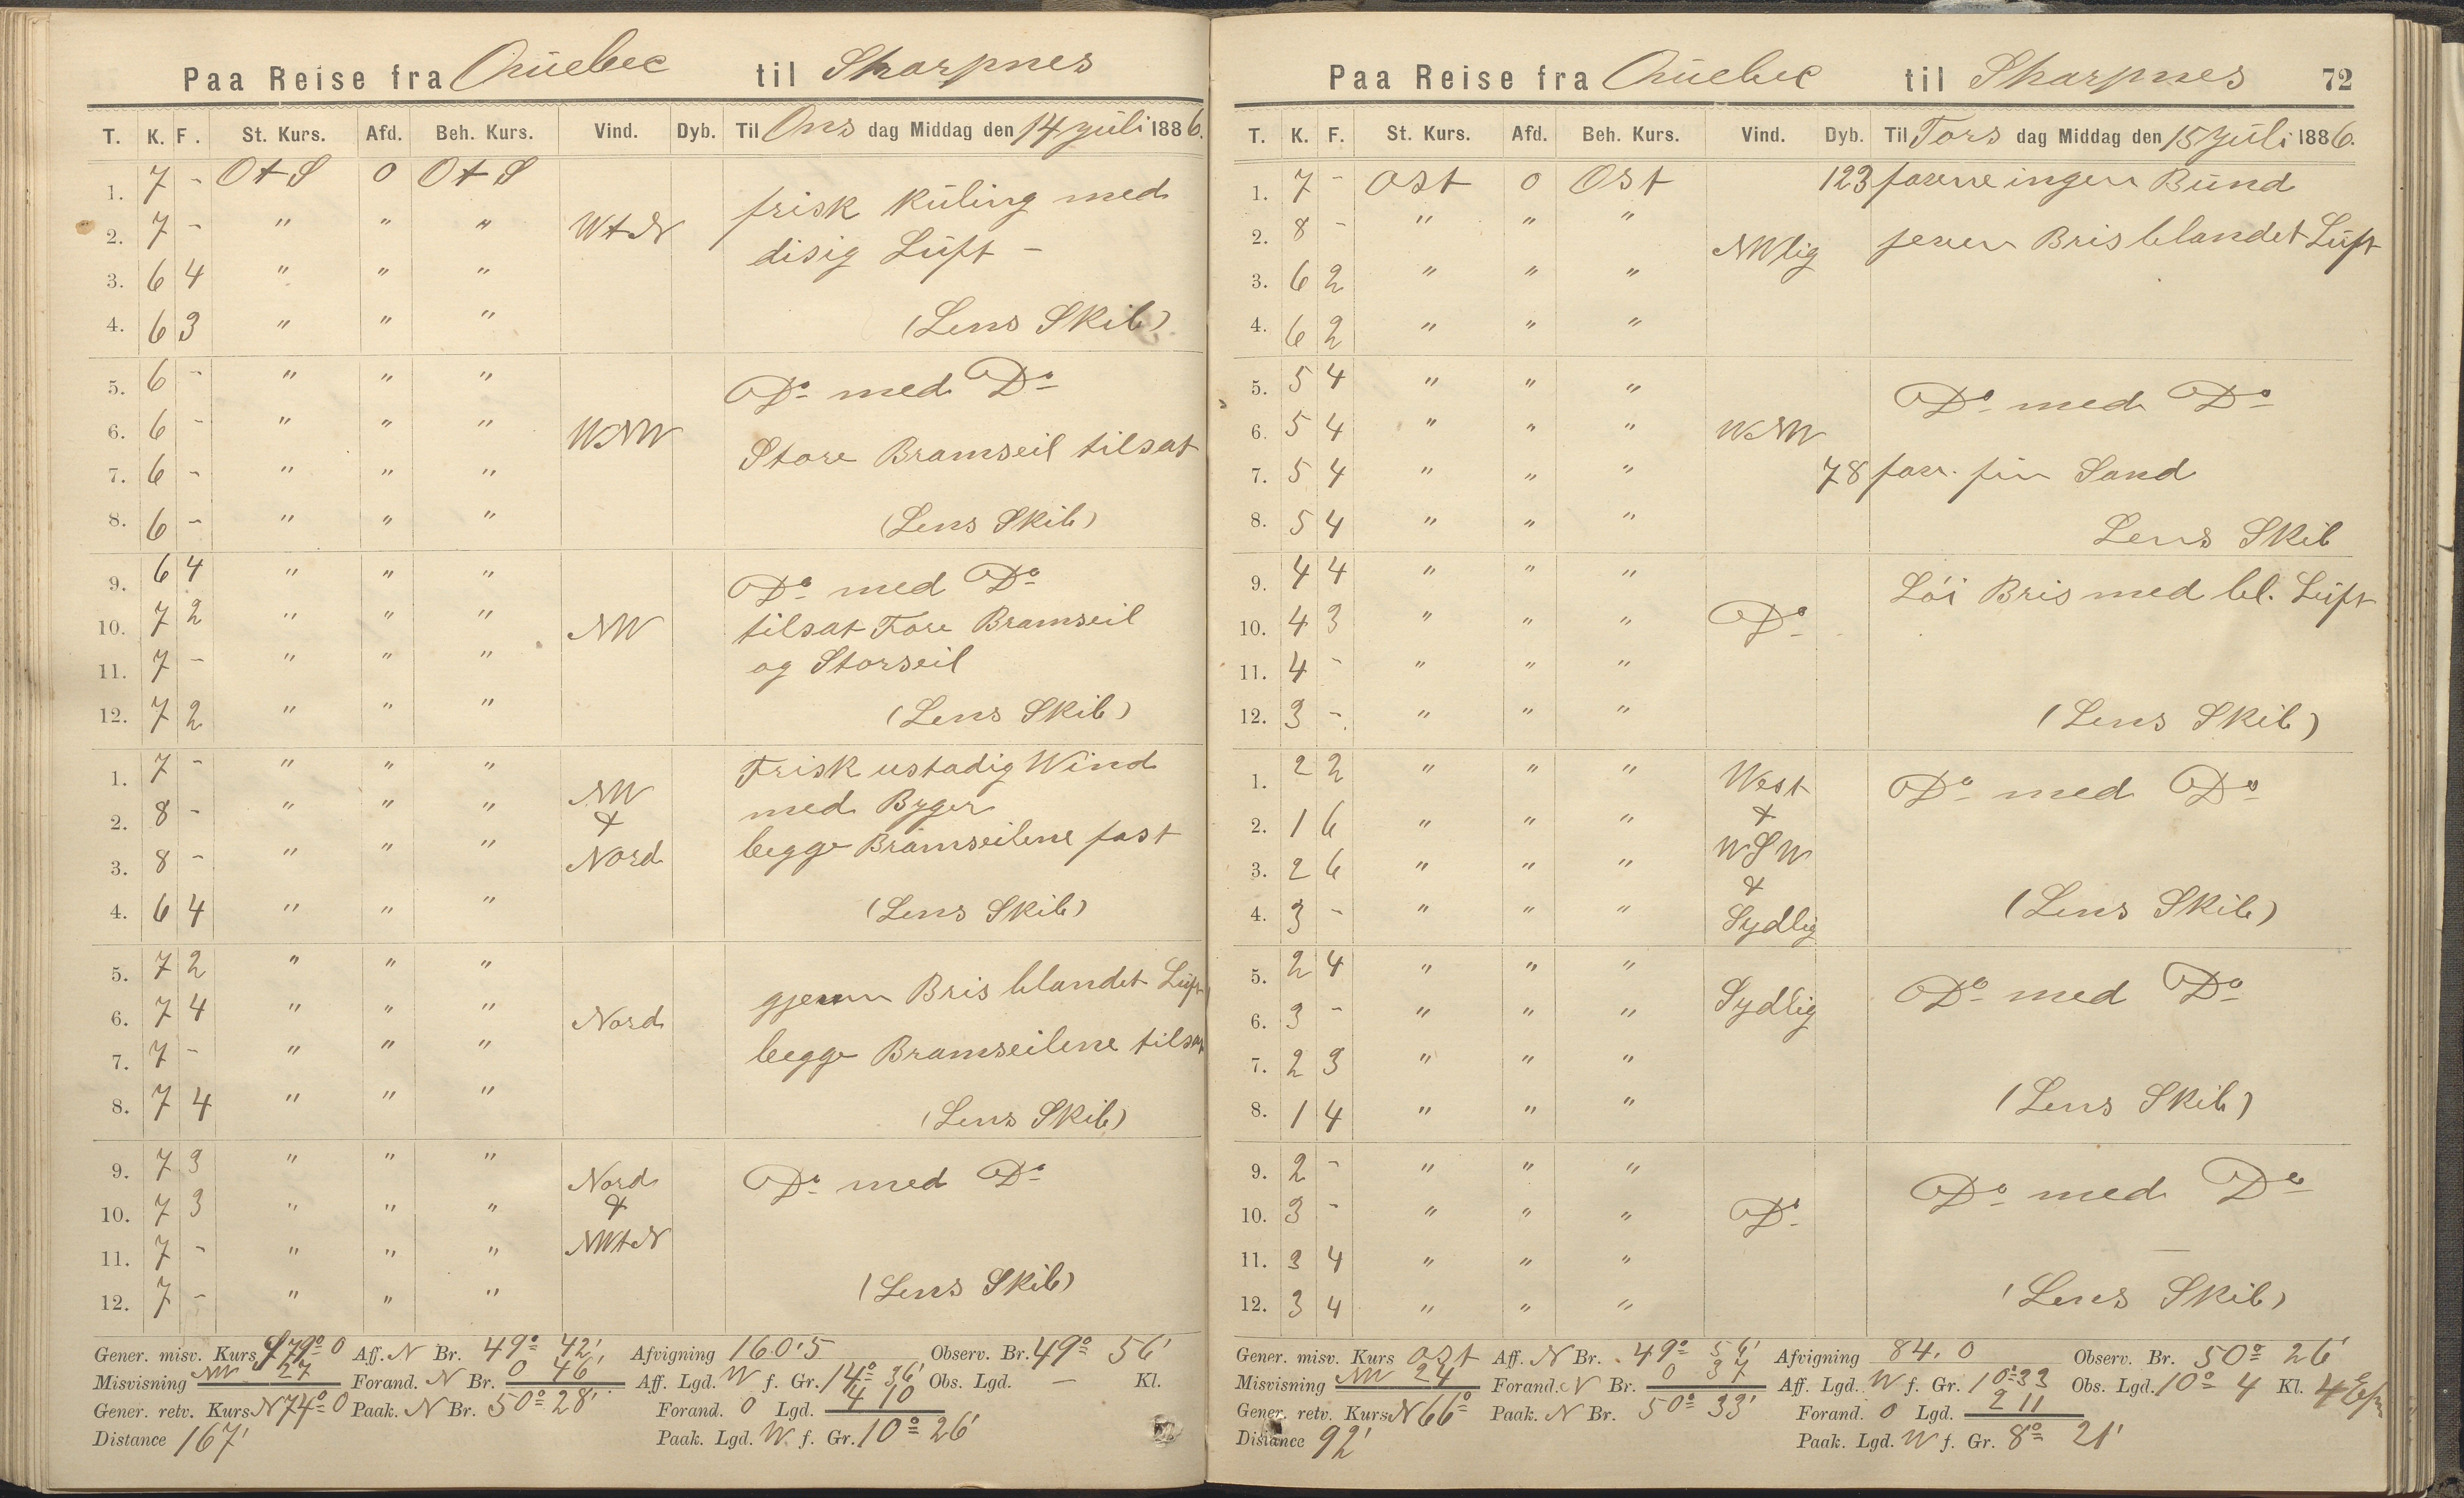 Paa Reise fra Quebec til Sharpnes
T. K. F. St. Kurs. Afd. Beh. Kurs. Vind. Dyb. Til Ons dag Middag den 14 Juli 1886.
1. 7 - OtS 0 OtS frisk Kuling med
2. 7 - " " " WtN disig Luft -
3. 6 4 " " "
4. 6 3 " " " (Lens Skib)
5. 6 - " " " Do med Do
6. 6 - " " " WNW Store Bramseil tilsat
7. 6 - " " "
8. 6 - " " " (Lens Skib)
9. 6 4 " " " Do med Do
10. 7 2 " " " NW tilsat Fore Bramseil
11. 7 - " " " og Storseil
12. 7 2 " " " (Lens Skib)
1. 7 - " " " NW Frisk ustadig Wind
2. 8 - " " " & med Byger
3. 8 - " " " Nord begge Bramseilene fast
4. 6 4 " " " (Lens Skib)
5. 7 2 " " " gjenn Bris blandet Luft
6. 7 4 " " " Nord
7. 7 - " " " begge Bramseilene tilsat
8. 7 4 " " " (Lens Skib)
9. 7 3 " " " Nord Do med Do
10. 7 3 " " " &
11. 7 - " " " NWtN
12. 7 - " " " (Lens Skib)
Gener. misv. Kurs S 79° O Aff. N Br. 49° 42' Afvigning 160.5 Observ. Br. 49° 56'
Misvisning NW 27 Forand. N Br. 0 46' Aff. Lgd. W f. Gr. 14° 36' Obs. Lgd. — Kl.
Gener. retv. Kurs N 74° O Paak. N Br. 50° 28' Forand. O Lgd. 4 10
Distance 167' Paak. Lgd. W f. Gr. 10° 26'
Paa Reise fra Quebec til Sharpnes 72
T. K. F. St. Kurs. Afd. Beh. Kurs. Vind. Dyb. Til Tors dag Middag den 15 Juli 1886.
1. 7 - Ost 0 Ost 123 favne ingen Bund
2. 8 - " " " NWlig jenn Bris blandet Luft
3. 6 2 " " "
4. 6 2 " " "
5. 5 4 " " " Do med Do
6. 5 4 " " " WNW
7. 5 4 " " " 78 favn. fin Sand
8. 5 4 " " " Lens Skib
9. 4 4 " " " Löi Bris med bl. Luft
10. 4 3 " " " Do
11. 4 - " " "
12. 3 - " " " (Lens Skib)
1. 2 2 " " " West Do med Do
2. 1 6 " " " &
3. 2 6 " " " WSW
&
4. 3 - " " " Sydlig (Lens Skib)
5. 2 4 " " " Do med Do
6. 3 - " " " Sydlig
7. 2 3 " " "
8. 1 4 " " " (Lens Skib)
9. 2 - " " " Do med Do
10. 3 - " " " Do
11. 3 4 " " "
12. 3 4 " " " (Lens Skib)
Gener. misv. Kurs Ost Aff. N Br. 49° 56' Afvigning 84.0 Observ. Br. 50° 26'
Misvisning NW 24 Forand. N Br. 0 37 Aff. Lgd. W f. Gr. 10° 33 Obs. Lgd. 10° 4 Kl. 4
Gener. retv. Kurs N 66° Paak. N Br. 50° 33' Forand. O Lgd. 2 11
Distance 92' Paak. Lgd. W f. Gr. 8° 21'